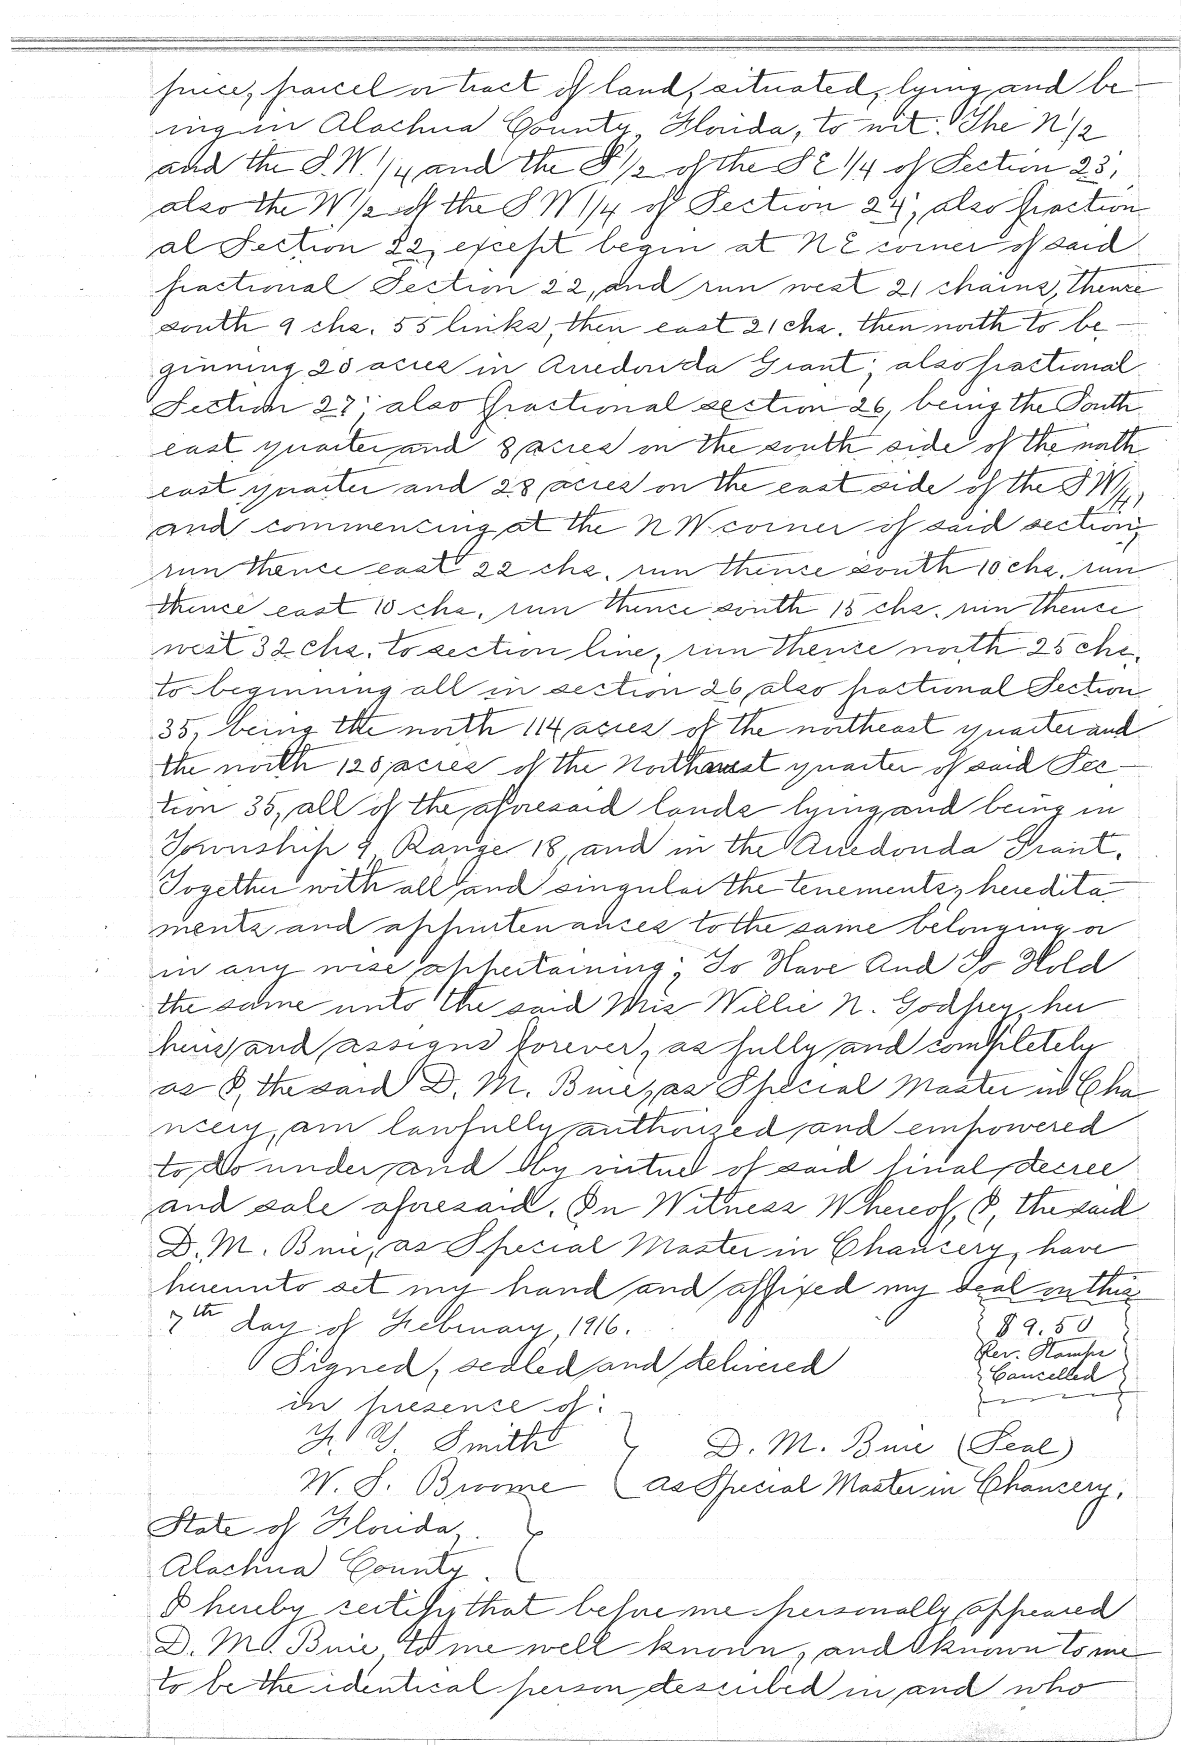 piece, parcel or tract of land, situated, lying and be-
ing in Alachua County, Florida, to wit: The N 1/2
and the S.W. 1/4 and the S 1/2 of the SE 1/4 of Section 23;
also the W 1/2 of the SW 1/4 of Section 24; also fraction
al Section 22, except begin at NE corner of said
fractional Section 22, and run west 21 chains, thence
south 9 chs. 55 links, then east 21 chs. then north to be-
ginning 20 acres in Arredonda Grant; also fractional
Section 27; also fractional section 26, being the South
east quarter and 8 acres on the south side of the north
east quarter and 28 acres on the east side of the SW 1/4,
and commencing at the NW corner of said section,
run thence east 22 chs. run thence south 10 chs. run
thence east 10 chs. run thence south 15 chs. run thence
west 32 chs. to section line, run thence north 25 chs.
to beginning all in section 26, also fractional Section
35, being the north 114 acres of the northeast quarter and
the north 120 acres of the Northwest quarter of said Sec-
tion 35, all of the aforesaid lands lying and being in
Township 9 Range 18, and in the Arredonda Grant.
Together with all and singular the tenements, heredita
ments and appurtenances to the same belonging or
in any wise appertaining; To Have And To Hold
the same unto the said Mrs Willie N. Godfrey, her
heirs and assigns forever, as fully and completely
as I, the said D. M. Buie, as Special Master in Cha
ncery, am lawfully authorized and empowered
to do under and by virtue of said final decree
and sale aforesaid. In Witness Whereof, I, the said
D. M. Buie, as Special Master in Chancery, have
hereunto set my hand and affixed my seal on this
7th day of February, 1916.
$9.50
Rev. Stamps
Cancelled
Signed, sealed and delivered
in presence of:
Smith
D. M. Buie (Seal)
W. S. Broome
as Special Master in Chancery.
State of Florida,
Alachua County.
I hereby certify that before me personally appeared
D. M. Buie, to me well known, and known to me
to be the identical person described in and who